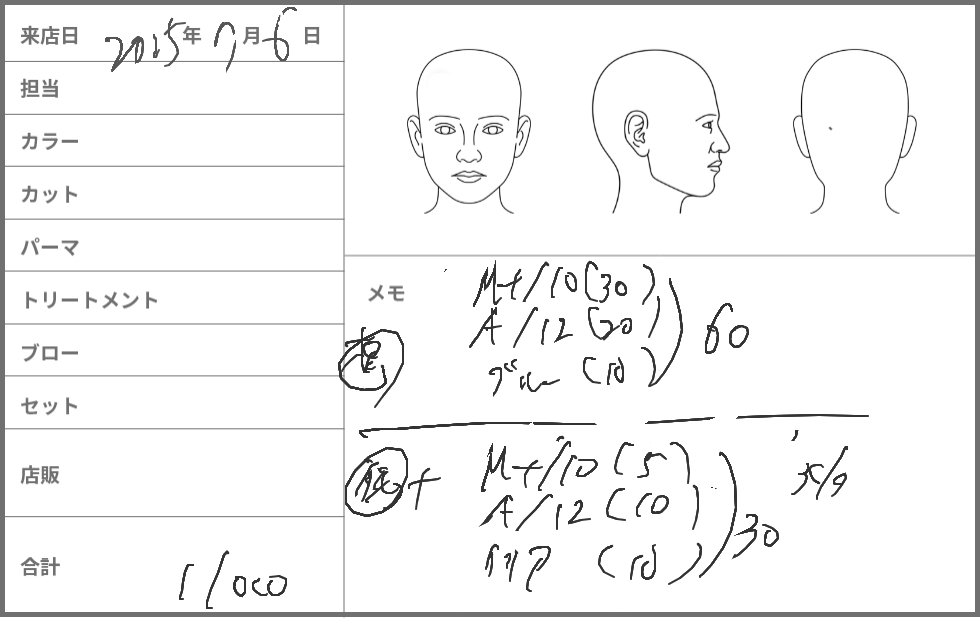 来店日 2015年7月6日
担当
カラー
カット
パーマ
トリートメント
ブロー
セット
店販
合計 11000
メモ
M+/10(30)
A/12(20) 60
ブルー(10)
M+/10(5)
A/12(10) 30
クリア(10)